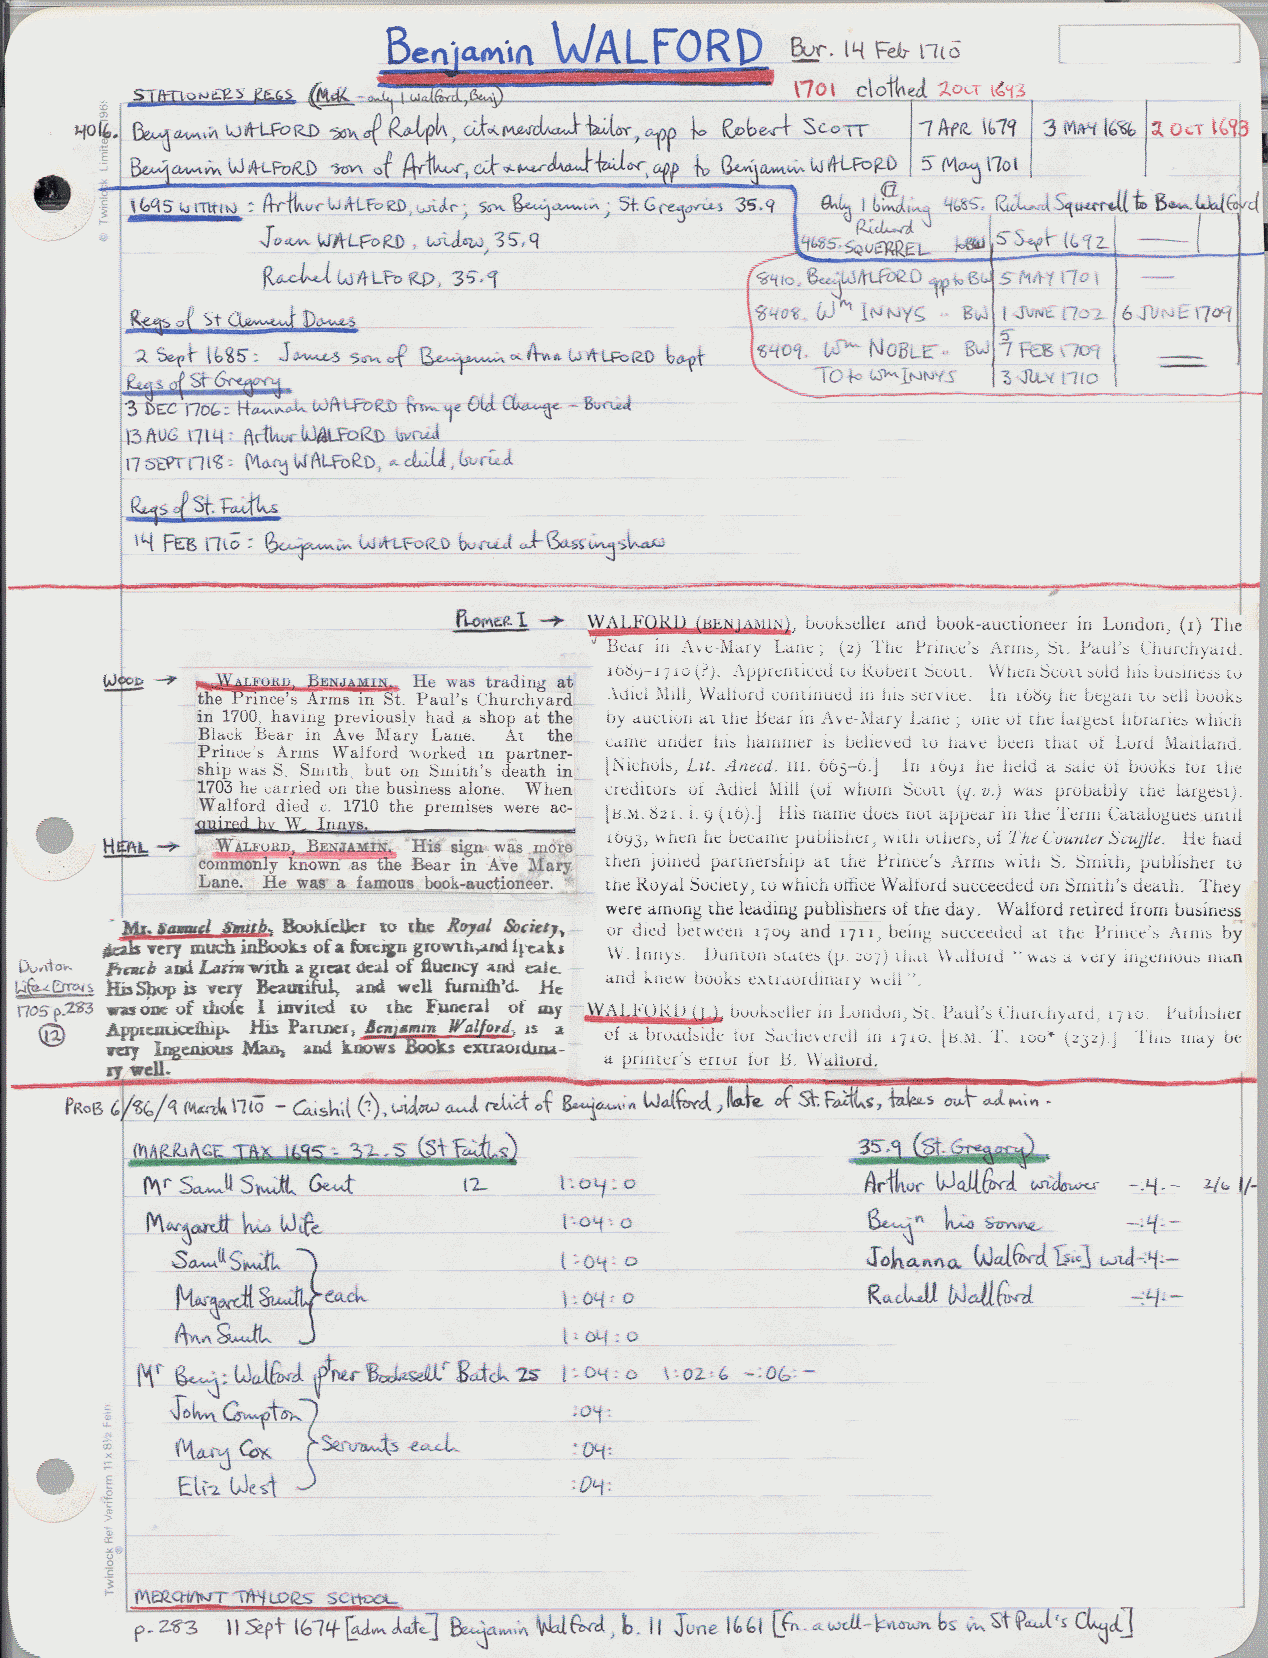 Benjamin WALFORD Bur. 14 Feb 1710
1701 clothed 2 OCT 1693
STATIONERS REGS (McK - only 1 Walford, Benj)
4016. Benjamin WALFORD son of Ralph, cit & merchant tailor, app to Robert SCOTT 7 APR 1679 3 MAY 1686 2 OCT 1693
Benjamin WALFORD son of Arthur, cit & merchant tailor, app to Benjamin WALFORD 5 May 1701
1695 WITHIN: Arthur WALFORD, widr; son Benjamin; St. Gregories 35.9
Joan WALFORD, widow, 35.9
Rachel WALFORD, 35.9
Only 1 binding 4685. Richard Squerrell to Ben. Walford
4685. Richard SQUERREL to BW 5 Sept 1692 —
8410. Benj WALFORD app to BW 5 MAY 1701 —
8408. Wm INNYS " BW 1 JUNE 1702 6 JUNE 1709
8409. Wm NOBLE " BW 5 7 FEB 1709 —
TO to Wm INNYS 3 JULY 1710
Regs of St Clement Danes
2 Sept 1685: James son of Benjamin & Ann WALFORD bapt
Regs of St Gregory
3 DEC 1706: Hannah WALFORD from ye Old Change - Buried
13 AUG 1714: Arthur WALFORD buried
17 SEPT 1718: Mary WALFORD, a child, buried
Regs of St. Faiths
14 FEB 1710: Benjamin WALFORD buried at Bassingshaw
PLOMER I →
WALFORD (BENJAMIN), bookseller and book-auctioneer in London, (1) The
Bear in Ave-Mary Lane; (2) The Prince's Arms, St. Paul's Churchyard.
1689-1710 (?). Apprenticed to Robert Scott. When Scott sold his business to
Adiel Mill, Walford continued in his service. In 1689 he began to sell books
by auction at the Bear in Ave-Mary Lane; one of the largest libraries which
came under his hammer is believed to have been that of Lord Maitland.
[Nichols, Lit. Anecd. III. 665-6.] In 1691 he held a sale of books for the
creditors of Adiel Mill (of whom Scott (q.v.) was probably the largest).
[B.M. 821. i. 9 (16).] His name does not appear in the Term Catalogues until
1693, when he became publisher, with others, of The Counter Scuffle. He had
then joined partnership at the Prince's Arms with S. Smith, publisher to
the Royal Society, to which office Walford succeeded on Smith's death. They
were among the leading publishers of the day. Walford retired from business
or died between 1709 and 1711, being succeeded at the Prince's Arms by
W. Innys. Dunton states (p. 207) that Walford "was a very ingenious man
and knew books extraordinary well".
WALFORD (J.), bookseller in London, St. Paul's Churchyard, 1710. Publisher
of a broadside for Sacheverell in 1710. [B.M. T. 100* (232).] This may be
a printer's error for B. Walford.
WOOD →
WALFORD, BENJAMIN. He was trading at
the Prince's Arms in St. Paul's Churchyard
in 1700, having previously had a shop at the
Black Bear in Ave Mary Lane. At the
Prince's Arms Walford worked in partner-
ship was S. Smith, but on Smith's death in
1703 he carried on the business alone. When
Walford died c. 1710 the premises were ac-
quired by W. Innys.
HEAL →
WALFORD, BENJAMIN. His sign was more
commonly known as the Bear in Ave Mary
Lane. He was a famous book-auctioneer.
Dunton
Life & Errors
1705 p.283
12
Mr. Samuel Smith, Bookseller to the Royal Society,
deals very much in Books of a foreign growth, and speaks
French and Latin with a great deal of fluency and ease.
His Shop is very Beautiful, and well furnish'd. He
was one of those I invited to the Funeral of my
Apprenticeship. His Partner, Benjamin Walford, is a
very Ingenious Man, and knows Books extraordina-
ry well.
PROB 6/86/9 March 1710 - Caishil (?), widow and relict of Benjamin Walford, late of St. Faiths, takes out admin.
MARRIAGE TAX 1695: 32.5 (St Faiths)
Mr Samll Smith Gent 12 1:04:0
Margarett his Wife 1:04:0
Samll Smith 1:04:0
Margarett Smith each 1:04:0
Ann Smith 1:04:0
Mr Benj: Walford ptner Booksellr Batch 25 1:04:0 1:02:6 -:06:-
John Compton :04:
Mary Cox Servants each :04:
Eliz West :04:
35.9 (St. Gregory)
Arthur Wallford widower -.4.- 2/6 1/-
Benjn his sonne -:4:-
Johanna Walford [sic] wid -:4:-
Rachell Wallford -:4:-
MERCHANT TAYLORS SCHOOL
p. 283 11 Sept 1674 [adm date] Benjamin Walford, b. 11 June 1661 [fn. a well-known bs in St Paul's Chyd]
© Twinlock Limited 1968
Twinlock Ref Variform 11 x 8½ Fein